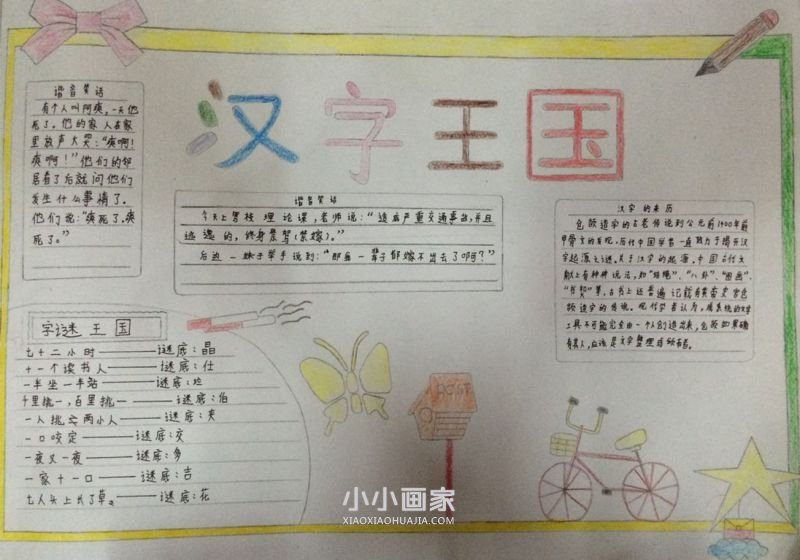 汉字王国
谐音笑话
有个人叫阿爽,一天他
死了。他的家人在家
里放声大哭:“爽啊!
爽啊!”他们的邻
居看了后就问他们
发生什么事情了。
他们说:“爽死了,爽
死了。”
谐音笑话
今天上驾校理论课,老师说:“造成严重交通事故,并且
逃逸的,终身禁驾(禁嫁)。”
后边一妹子举手说到:“那岂一辈子都嫁不出去了啊?”
汉字的来历
仓颉造字的古老传说到公元前1900年前
甲骨文的发现,历代中国学者一直致力于揭开汉
字起源之谜。关于汉字的起源,中国古代文
献上有种种说法,如“结绳”、“八卦”、“图画”、
“书契”等,古书上还普遍记载有黄帝史官仓
颉造字的传说。现代学者认为,成系统的文字
工具不可能完全由一个人创造出来,仓颉如果确
有其人,应该是文字整理者或颁布者。
字谜王国
七十二小时——谜底:晶
十一个读书人——谜底:仕
一半坐一半站——谜底:
千里挑一,百里挑一——谜底:伯
一人挑两小人——谜底:夹
一口咬定——谜底:交
一夜又一夜——谜底:多
一家十一口——谜底:吉
七人头上长了草。——谜底:花
POST
小小画家
XIAOXIAOHUAJIA.COM